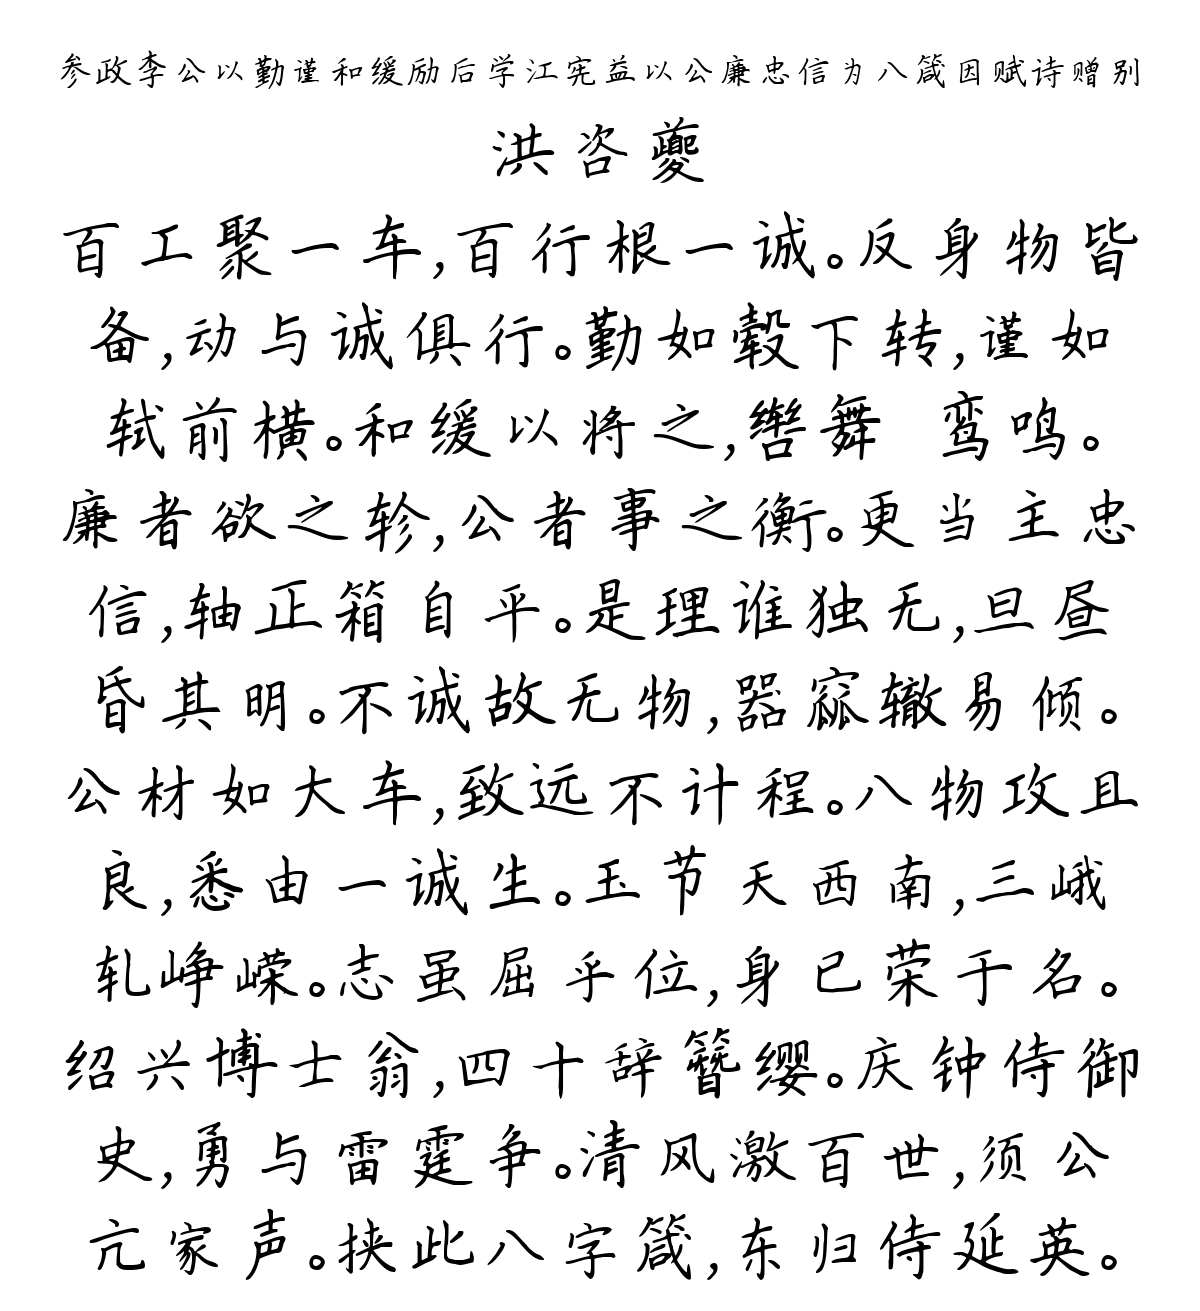 参政李公以勤谨和缓励后学江宪益以公廉忠信为八箴因赋诗赠别
洪咨夔
百工聚一车,百行根一诚。反身物皆
备,动与诚俱行。勤如毂下转,谨如
轼前横。和缓以将之,辔舞 鸾鸣。
廉者欲之轸,公者事之衡。更当主忠
信,轴正箱自平。是理谁独无,旦昼
昏其明。不诚故无物,器窳辙易倾。
公材如大车,致远不计程。八物攻且
良,悉由一诚生。玉节天西南,三峨
轧峥嵘。志虽屈乎位,身已荣于名。
绍兴博士翁,四十辞簪缨。庆钟侍御
史,勇与雷霆争。清风激百世,须公
亢家声。挟此八字箴,东归侍延英。